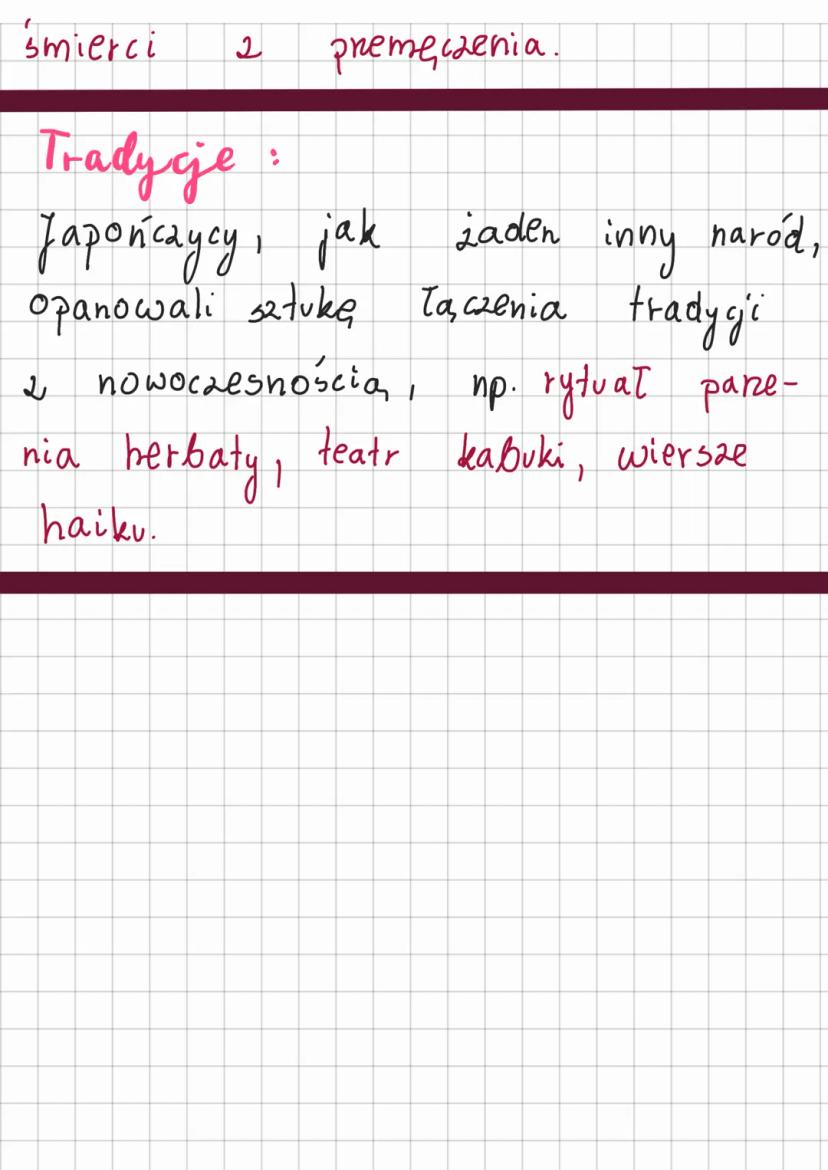 śmierci z przemęczenia.
Tradycje :
Japończycy, jak żaden inny naród,
opanowali sztukę łączenia tradycji
z nowoczesnością, np. rytuał parze-
nia herbaty, teatr kabuki, wiersze
haiku.